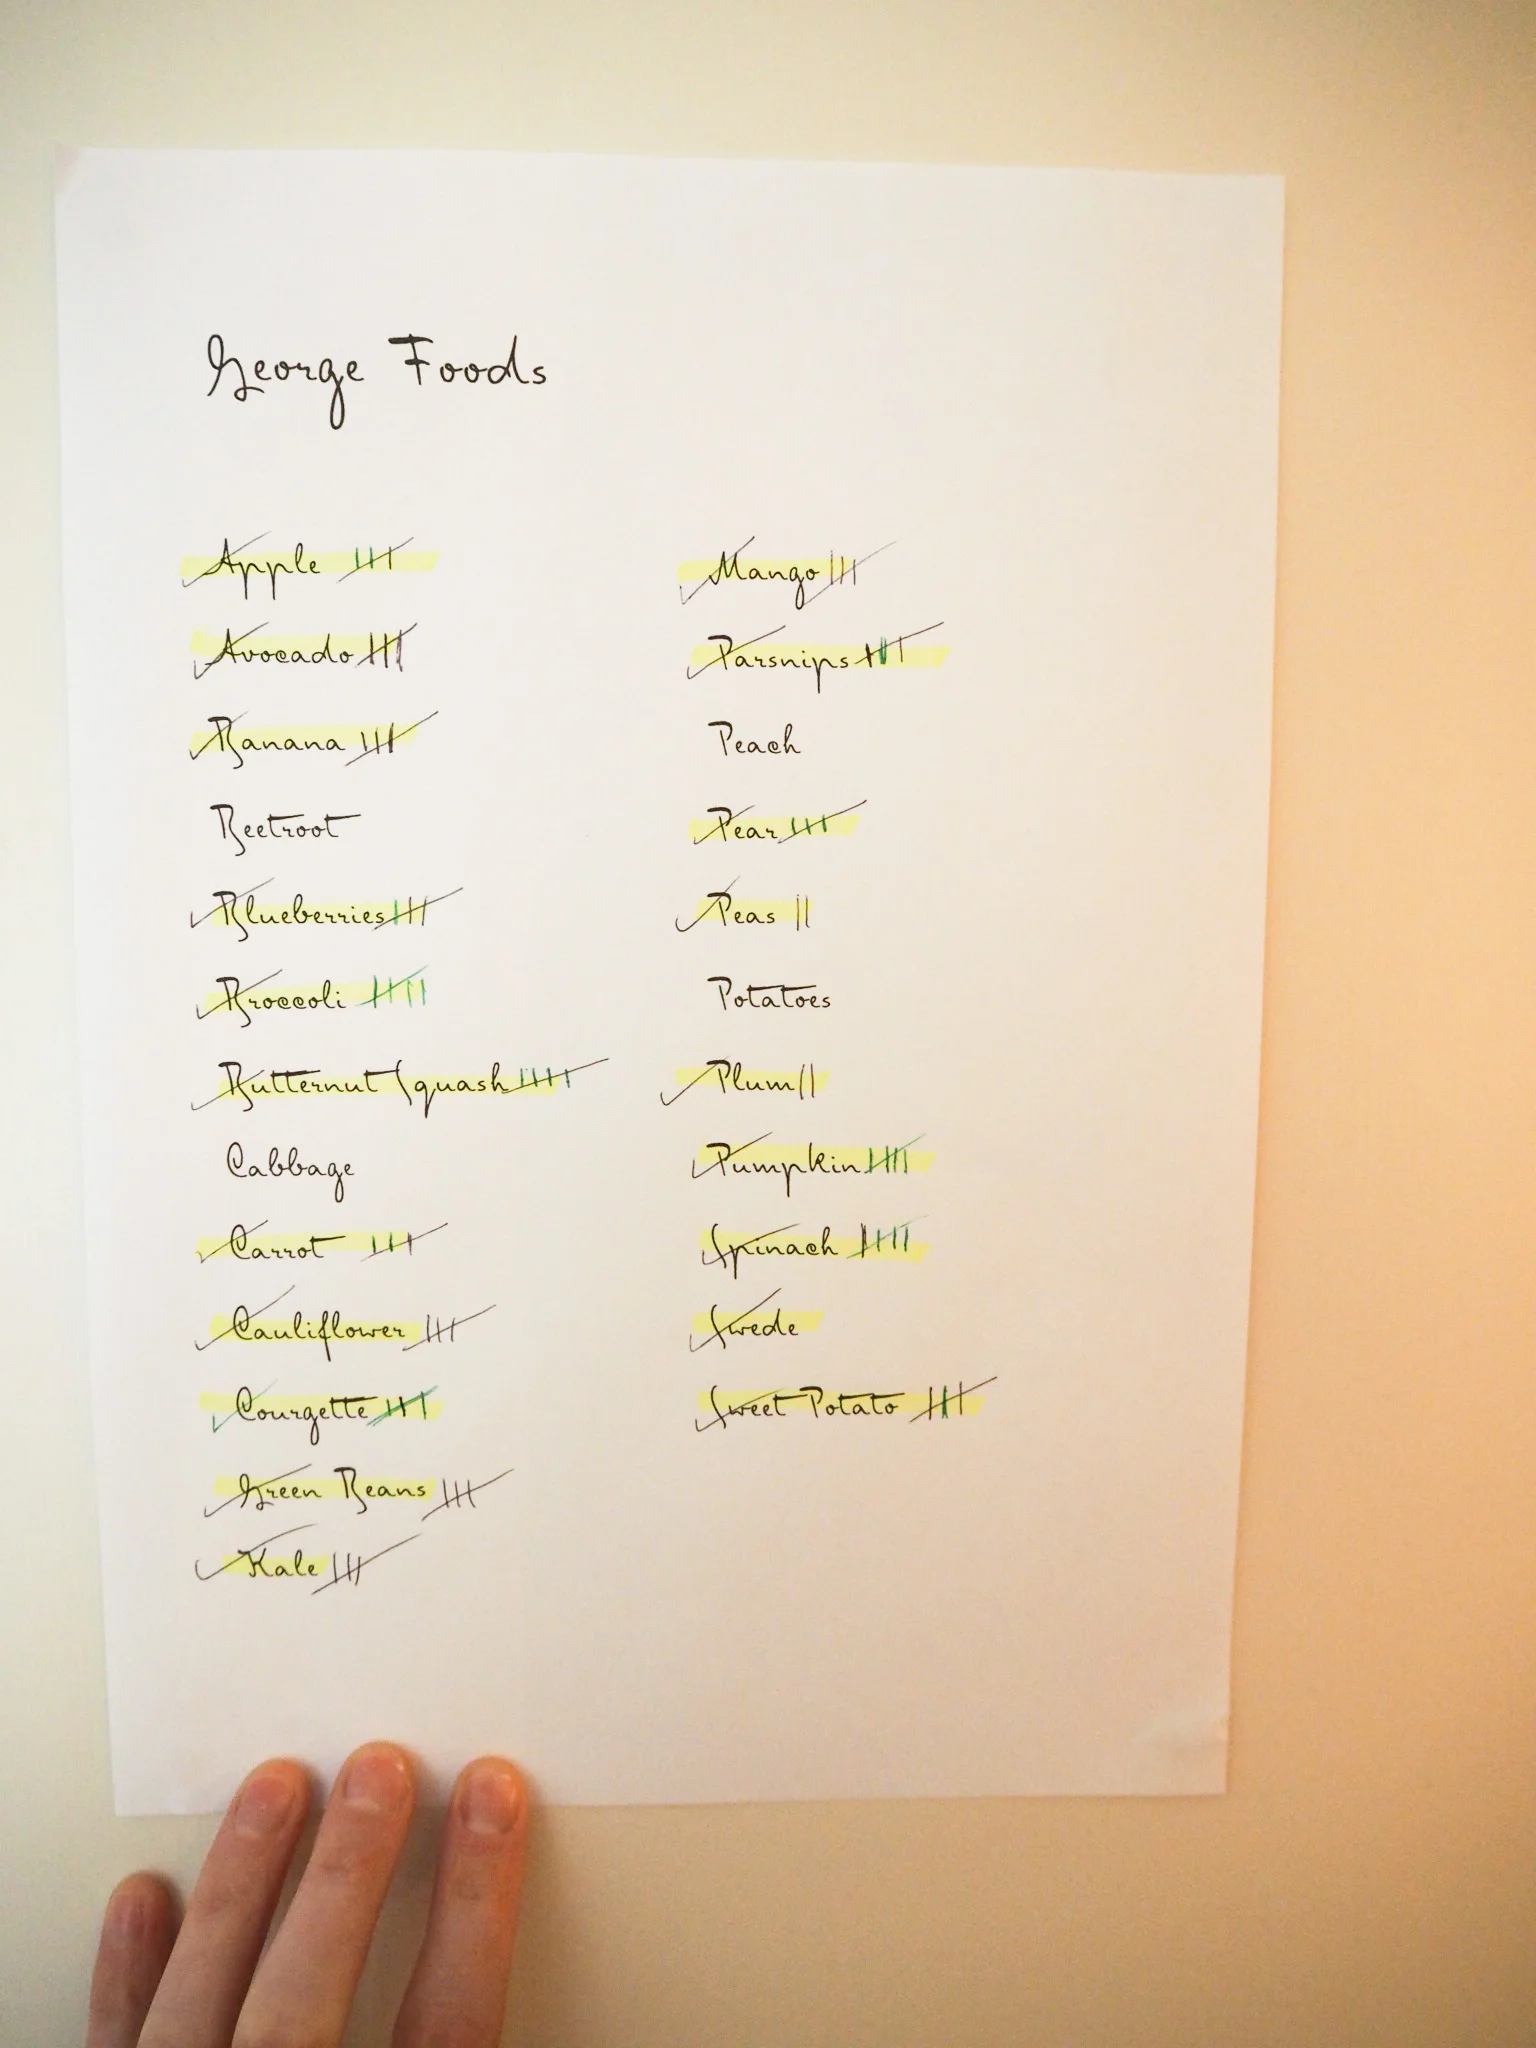 George Foods
Apple
Avocado
Banana
Beetroot
Blueberries
Broccoli
Butternut Squash
Cabbage
Carrot
Cauliflower
Courgette
Green Beans
Kale
Mango
Parsnips
Peach
Pear
Peas
Potatoes
Plum
Pumpkin
Spinach
Swede
Sweet Potato